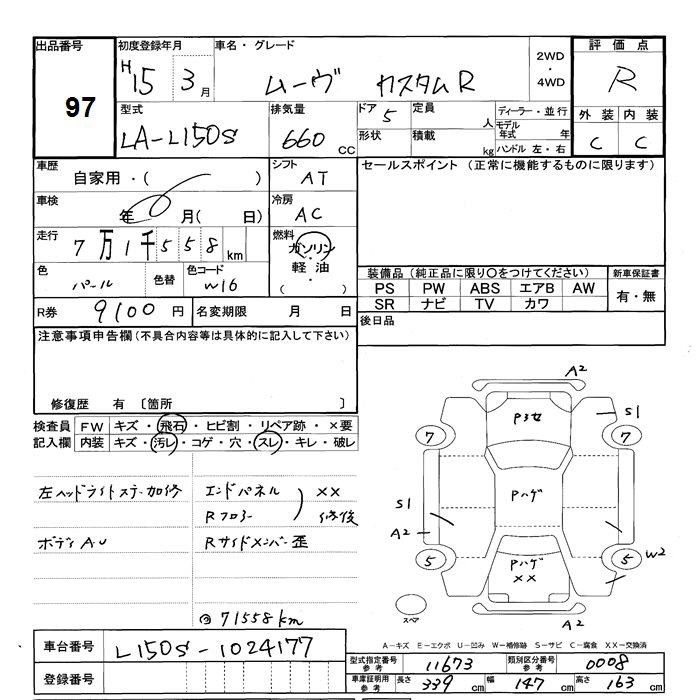 出品番号
97
初度登録年月
H15 3月
車名・グレード
ムーヴ カスタムR
2WD
・
4WD
評価点
R
型式
LA-L150S
排気量
660 CC
ドア 5
形状
定員 人
積載 kg
ディーラー・並行
モデル年式 年
ハンドル 左・右
外装 内装
C C
車歴
自家用・( )
シフト
AT
車検
年 月( 日)
冷房
AC
走行
7万1千558km
燃料
ガソリン
・
軽油
( )
色
パール
色替
色コード
W16
R券 9100円
名変期限 月 日
セールスポイント (正常に機能するものに限ります)
装備品 (純正品に限り〇をつけてください)
新車保証書
PS PW ABS エアB AW
SR ナビ TV カワ
有・無
後日品
注意事項申告欄(不具合内容等は具体的に記入して下さい)
修復歴 有 〔箇所 〕
検査員 FW キズ・飛石・ヒビ割・リペア跡・×要
記入欄 内装 キズ・汚レ・コゲ・穴・スレ・キレ・破レ
左ヘッドライトステー加修
ボディAU
エンドパネル
Rフロアー
XX
修後
Rサイドメンバー歪
@71558km
A2
S1
7
7
P3女
Pハゲ
S1
A2
5
5
W2
Pハゲ
XX
スペア
A2
A-キズ E-エクボ U-凹み W-補修跡 S-サビ C-腐食 XX-交換済
車台番号 L150S-1024177
登録番号
型式指定番号 参考 11673
類別区分番号 参考 0008
車庫証明用 参考 長さ 339cm 幅 147cm 高さ 163cm